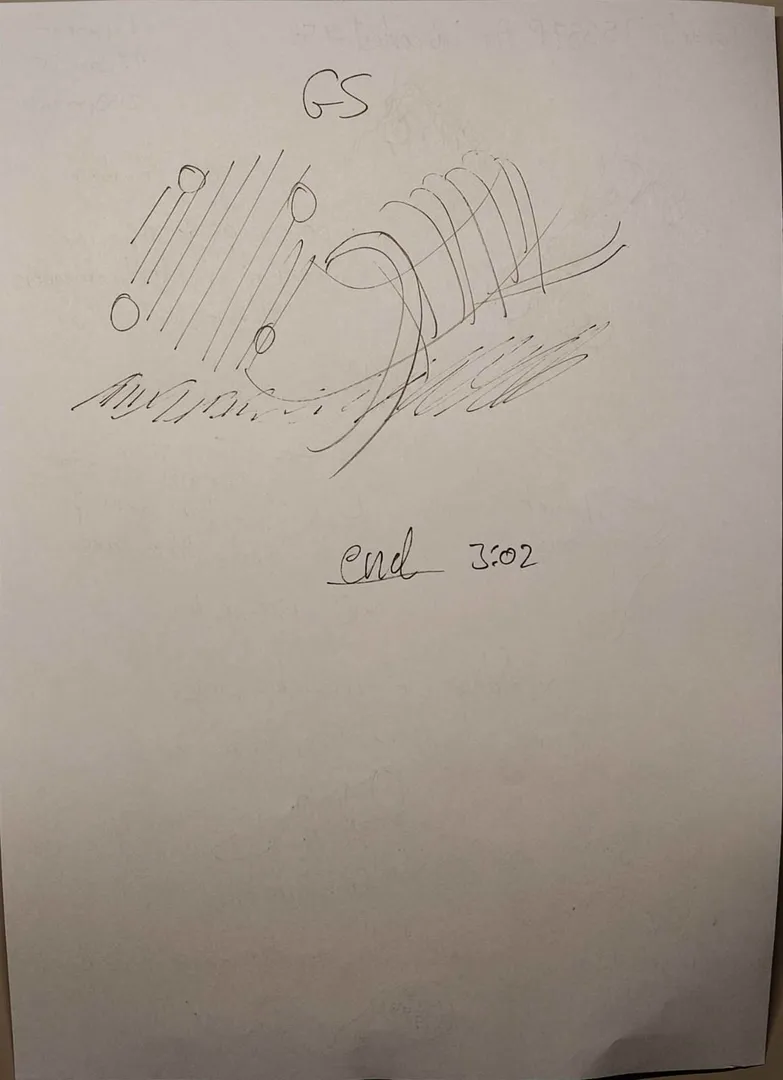 GS
end 3:02